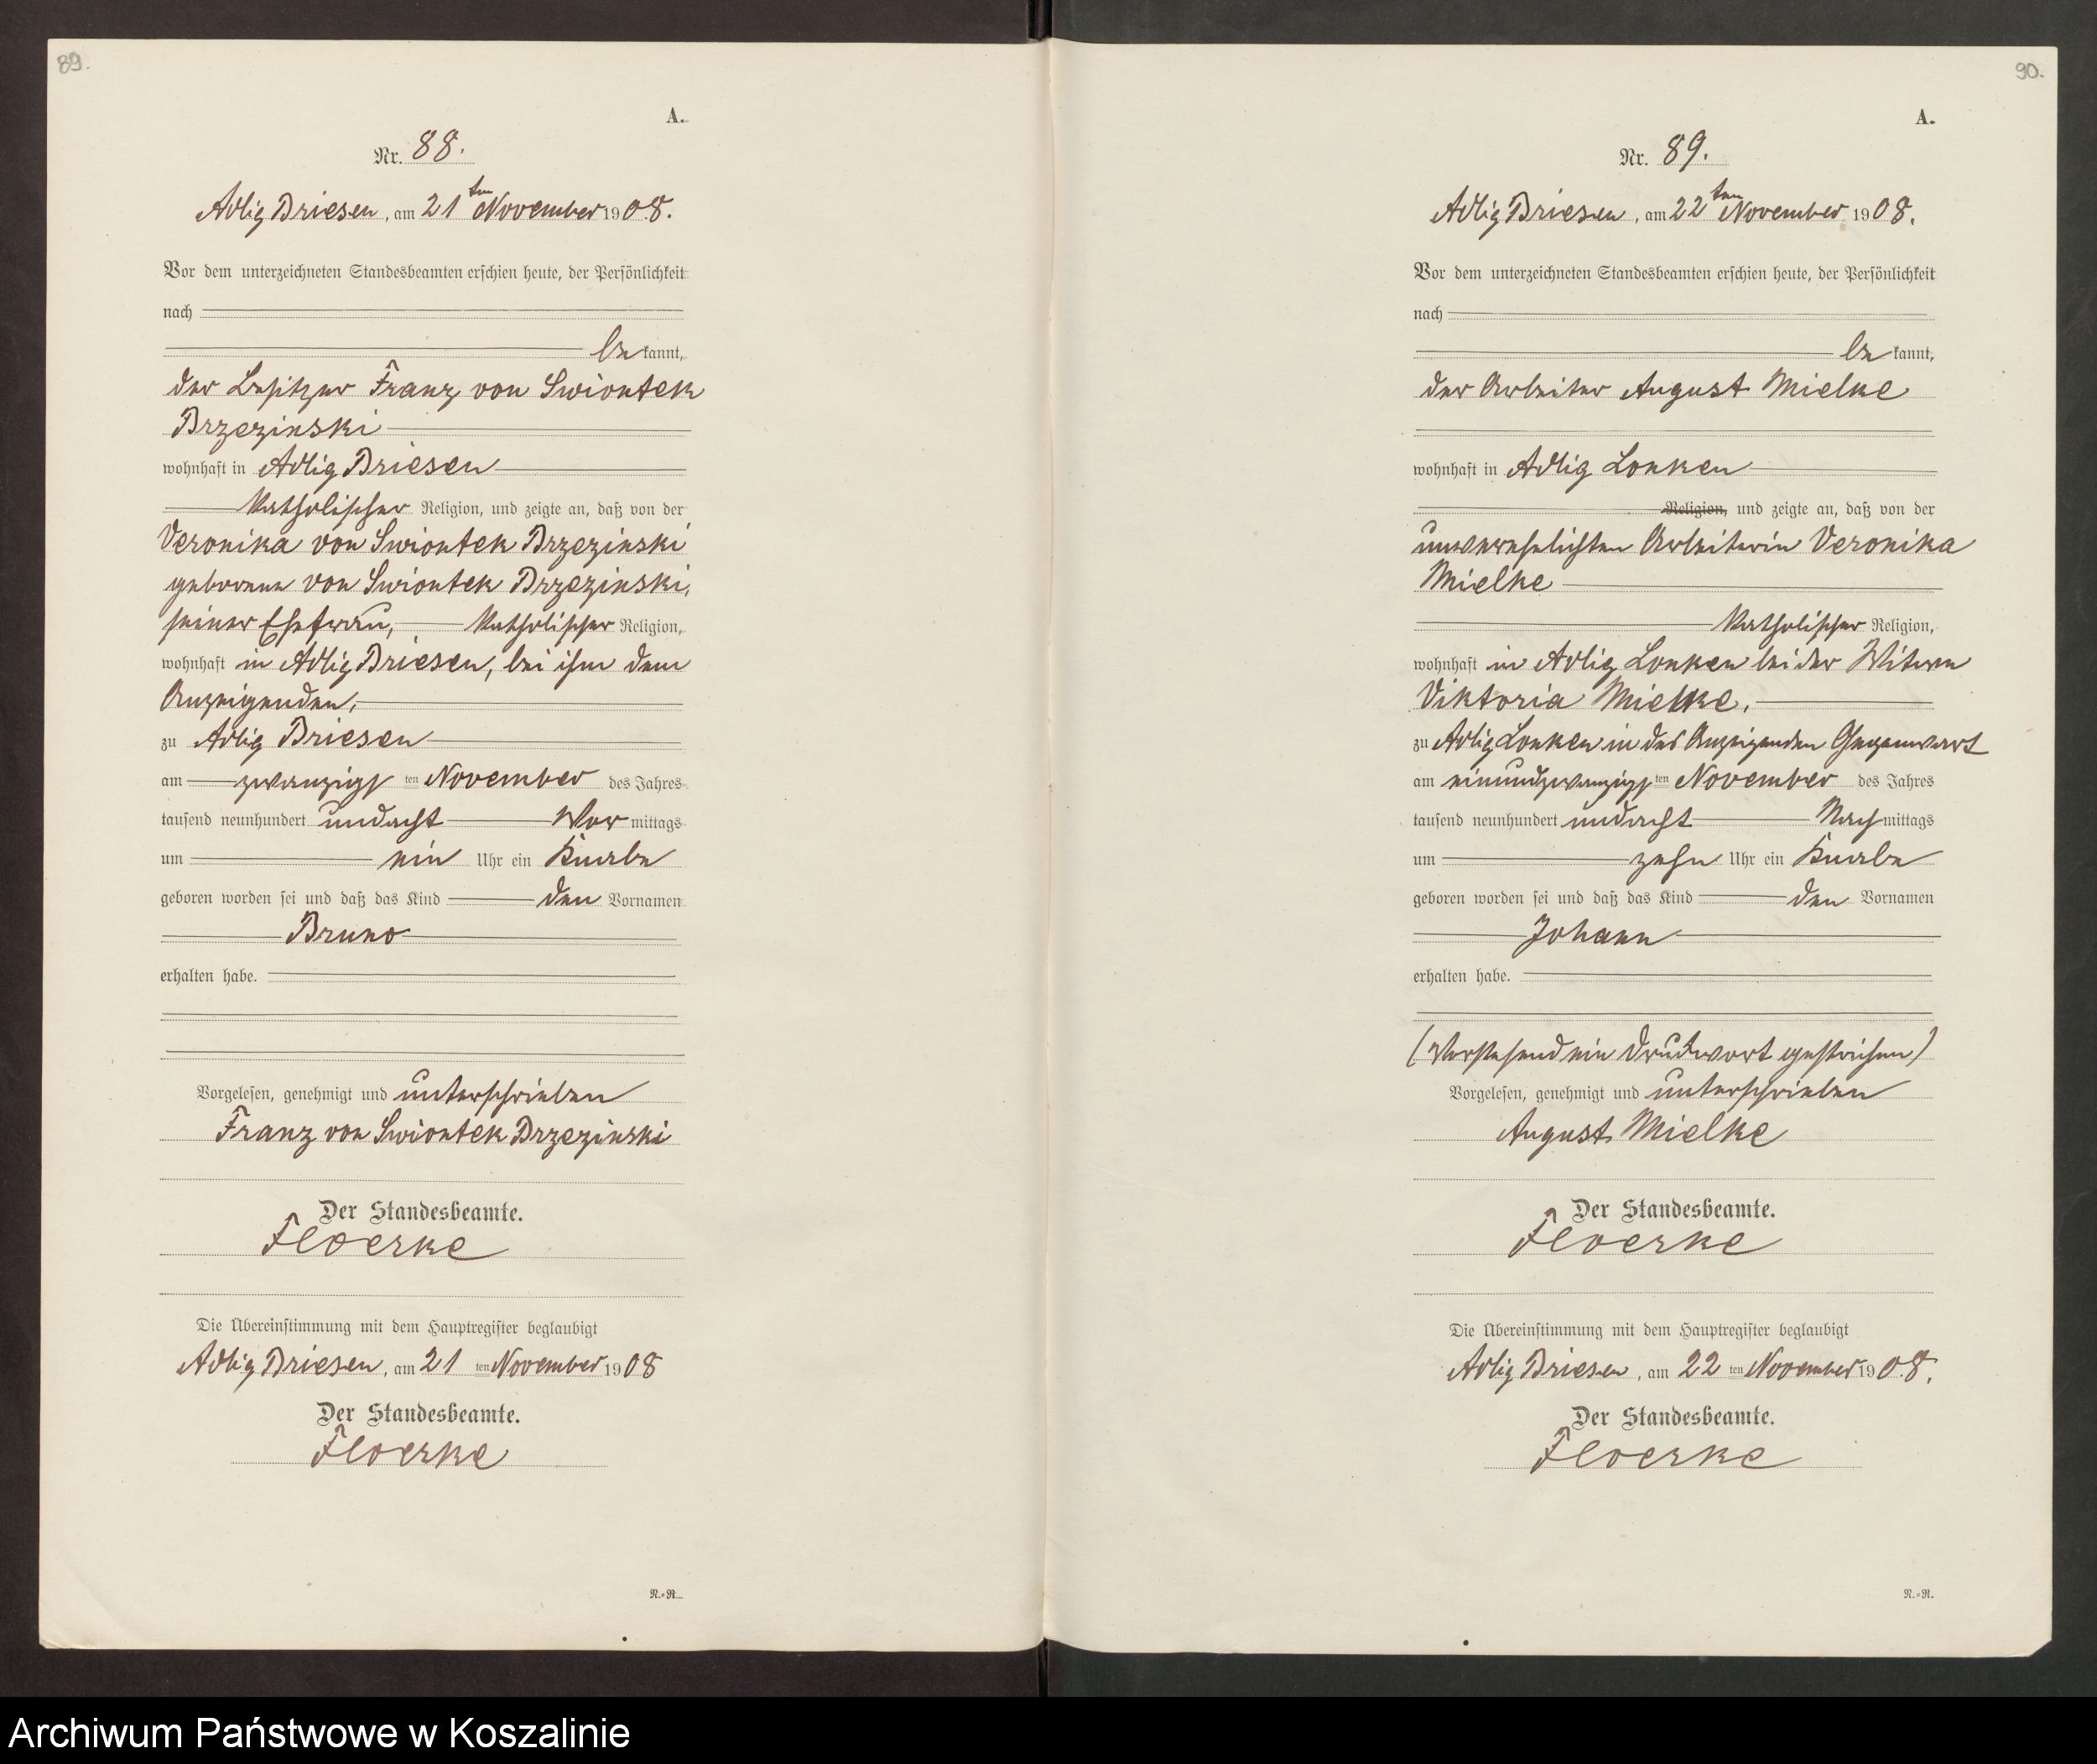 89.
A.
Nr. 88.
Adlig Briesen, am 21ten November 1908.
Vor dem unterzeichneten Standesbeamten erschien heute, der Persönlichkeit
nach
bekannt,
der Besitzer Franz von Swiontek
Brzezinski
wohnhaft in Adlig Briesen
katholischer Religion, und zeigte an, daß von der
Veronika von Swiontek Brzezinski
geborene von Swiontek Brzezinski,
seiner Ehefrau, katholischer Religion,
wohnhaft in Adlig Briesen, bei ihm dem
Anzeigenden,
zu Adlig Briesen
am zwanzigsten November des Jahres
tausend neunhundert undacht Vormittags
um ein Uhr ein Knabe
geboren worden sei und daß das Kind den Vornamen
Bruno
erhalten habe.
Vorgelesen, genehmigt und unterschrieben
Franz von Swiontek Brzezinski
Der Standesbeamte.
Floerke
Die Übereinstimmung mit dem Hauptregister beglaubigt
Adlig Briesen, am 21ten November 1908
Der Standesbeamte.
Floerke
N.=R.
90.
A.
Nr. 89.
Adlig Briesen, am 22ten November 1908.
Vor dem unterzeichneten Standesbeamten erschien heute, der Persönlichkeit
nach
bekannt,
der Arbeiter August Mielke
wohnhaft in Adlig Lonken
Religion, und zeigte an, daß von der
unverehelichten Arbeiterin Veronika
Mielke
katholischer Religion,
wohnhaft in Adlig Lonken bei der Witwe
Viktoria Mielke,
zu Adlig Lonken in des Anzeigenden Gegenwart
am einundzwanzigsten November des Jahres
tausend neunhundert undacht Nachmittags
um zehn Uhr ein Knabe
geboren worden sei und daß das Kind den Vornamen
Johann
erhalten habe.
(Vorstehend ein Druckwort gestrichen)
Vorgelesen, genehmigt und unterschrieben
August Mielke
Der Standesbeamte.
Floerke
Die Übereinstimmung mit dem Hauptregister beglaubigt
Adlig Briesen, am 22ten November 1908.
Der Standesbeamte.
Floerke
N.=R.
Archiwum Państwowe w Koszalinie